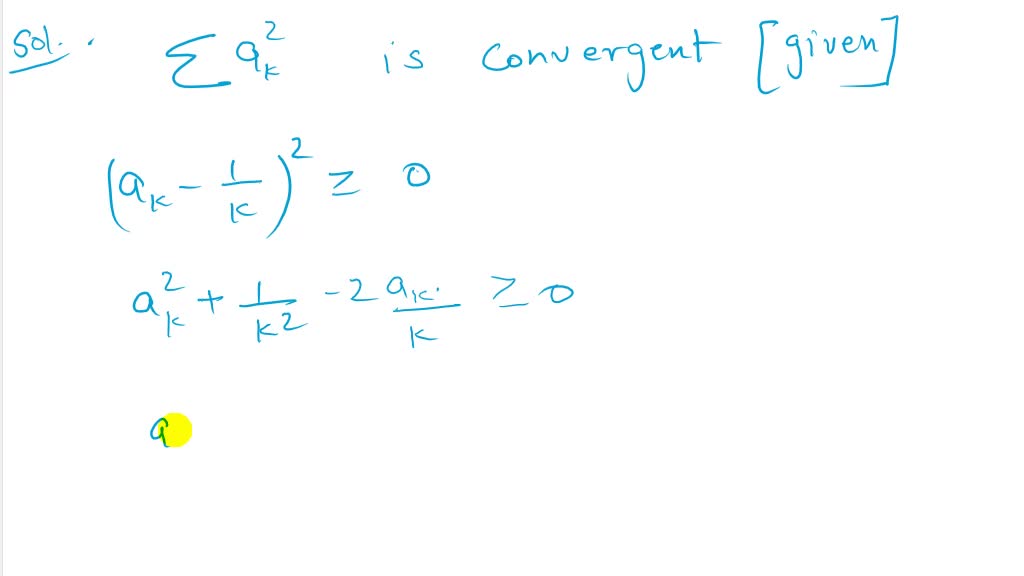 Sol. . Σ a_k^2 is convergent [given]
(a_k - 1/k)^2 ≥ 0
a_k^2 + 1/k^2 - 2 a_k/k ≥ 0
a